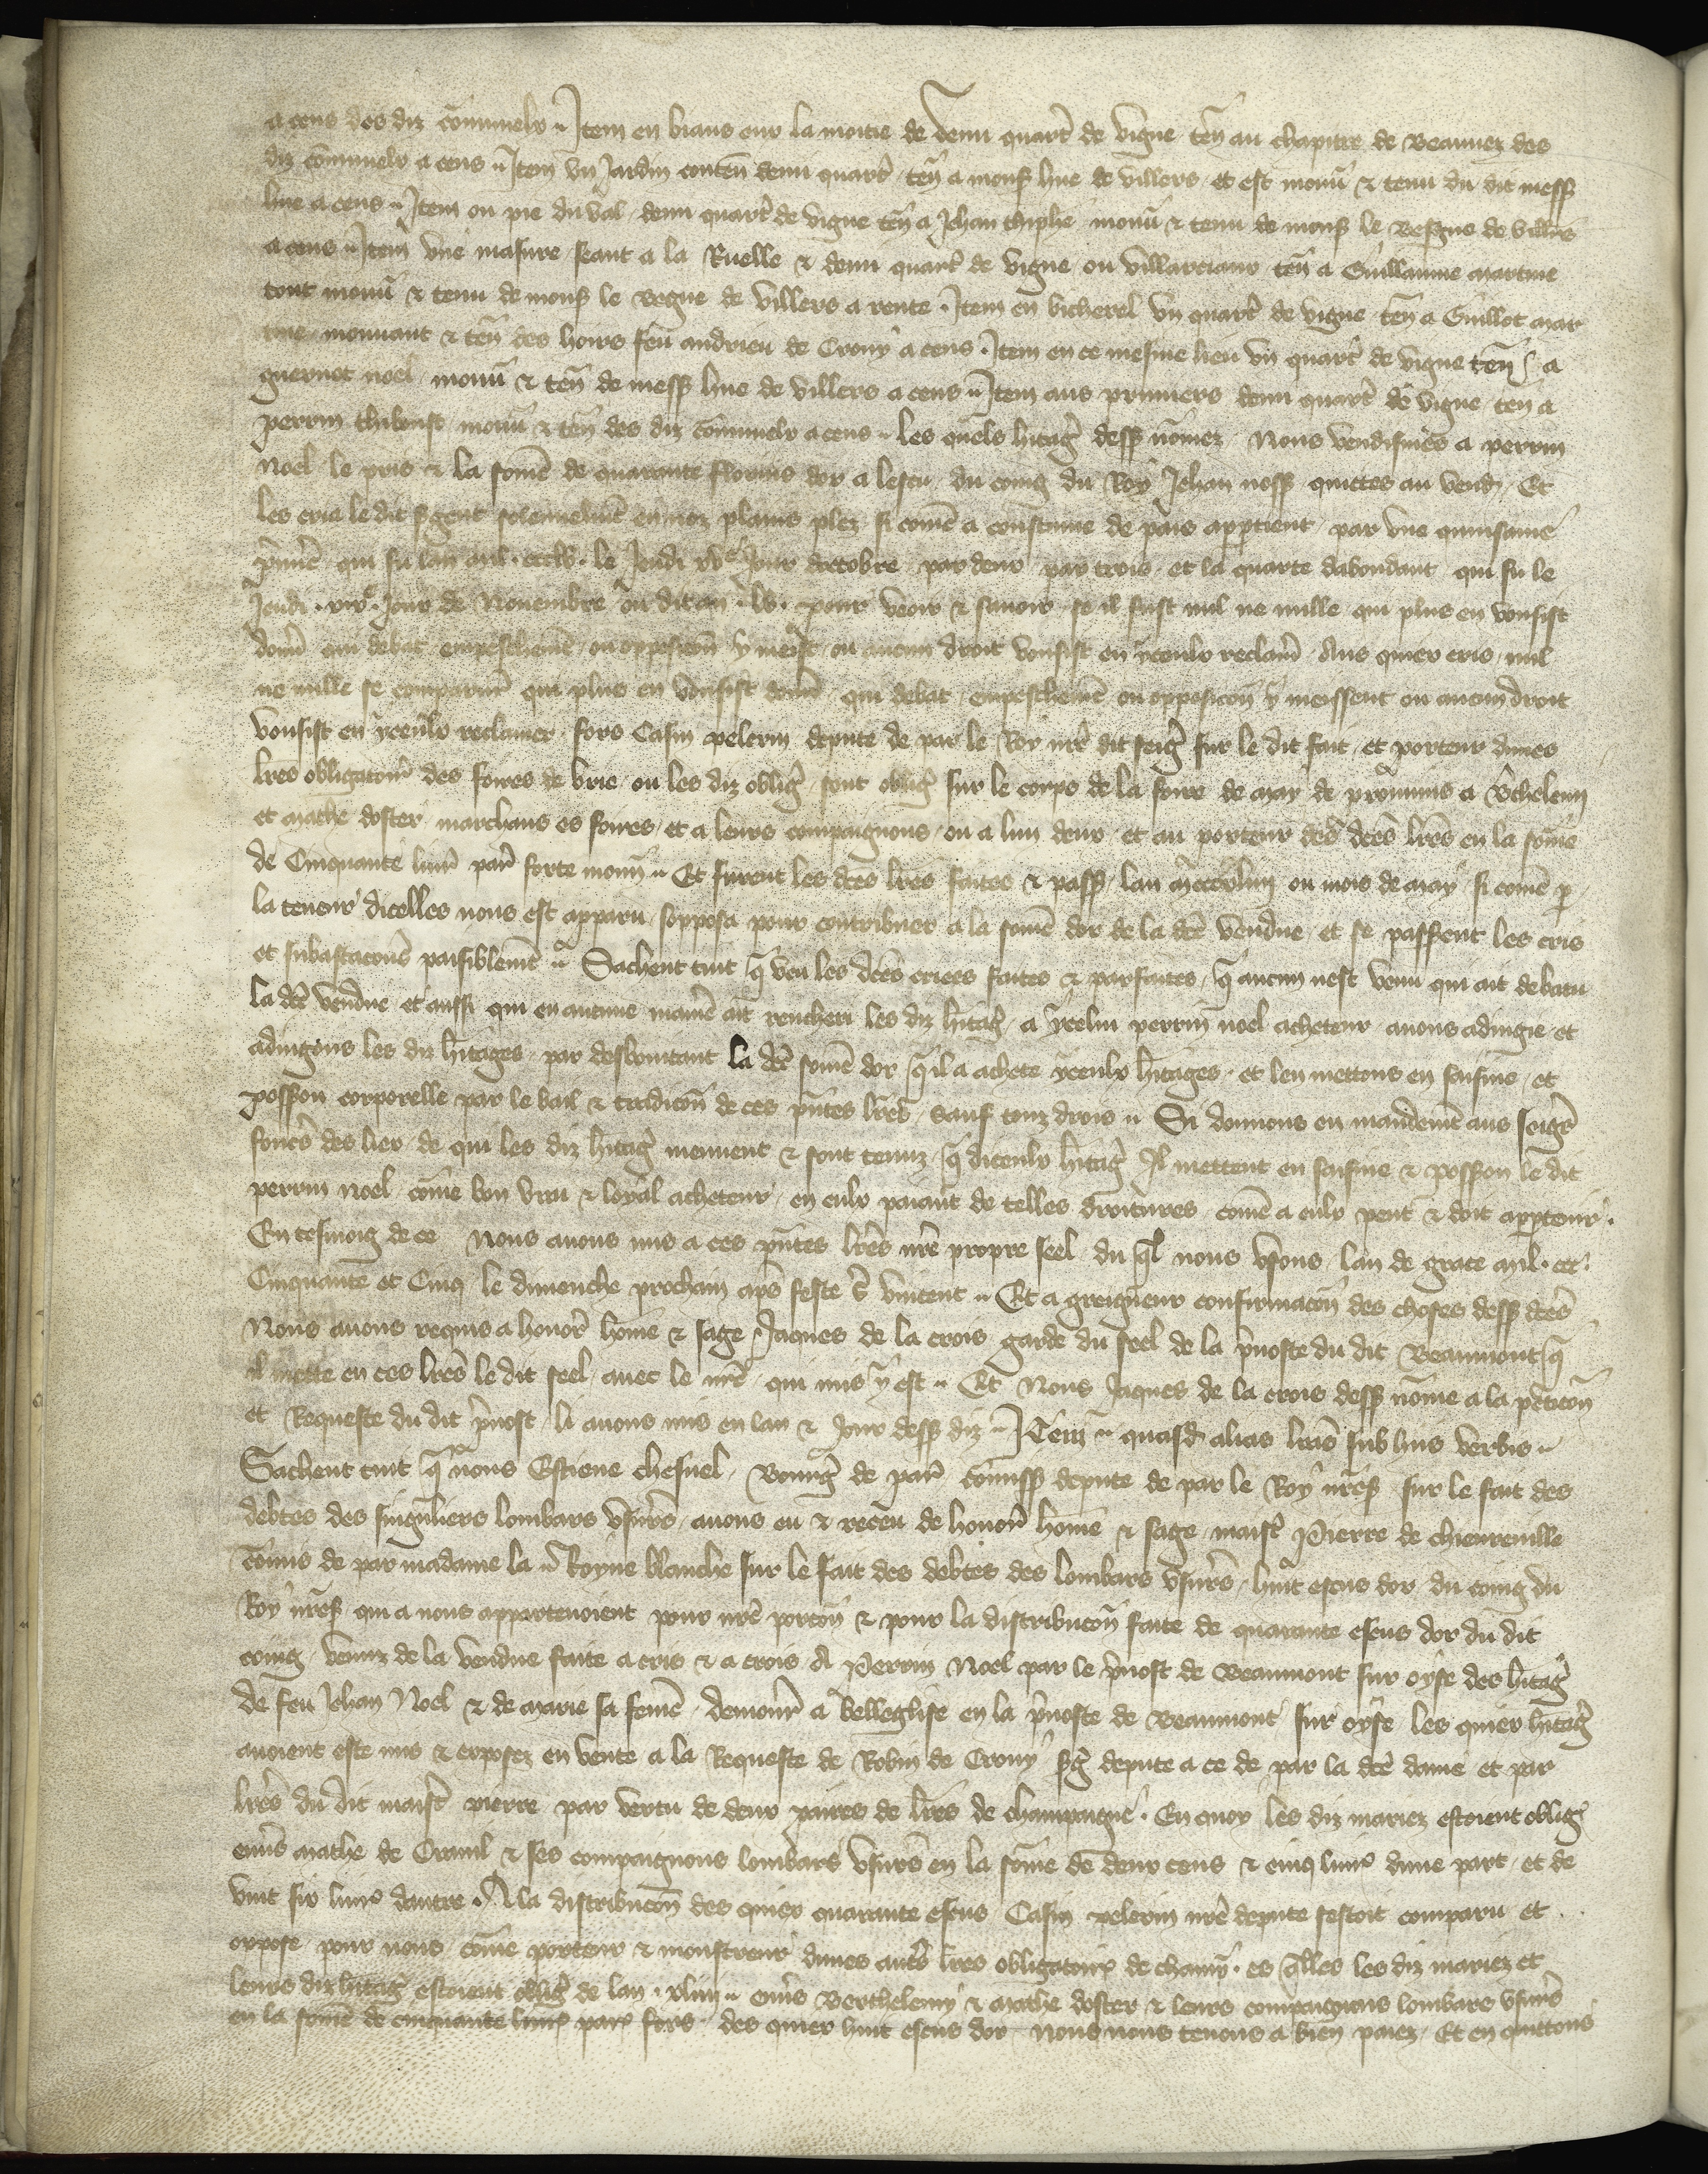 a cens des diz cōmunels · Item en biaus eur la moitie de demi quart̄ de vigne teñ au chapitre de Beauvez des
diz cōmunels a cens · Item un Jardin conteñ demi quart̄ teñ a mons̄ hue de villers et est mouū & tenu du dit mess̄
hue a cens · Item ou pie du val demi quart̄ de vigne teñ a Jehan thiphe mouū & tenu de mons̄ le Besgue de villers
a cens · Item une masure seant a la Ruelle & demi quart̄ de vigne ou villarciaux teñ a Guillaume martine
tout mouū & tenu de mons̄ le Begue de villers a rente · Item en bicherel un quart̄ de vigne teñ a Guillot mar
tine mouvant & teñ des hoirs feu andrieu de Crouy a cens · Item en ce mesme lieu un quart̄ de vigne teñ a
guernot noel mouū & teñ de mess̄ hue de villers a cens · Item aus pruniers demi quart̄ de vigne teñ a
perrin thiboust mouū & teñ des diz cōmunels a cens · les quels h̄itaḡ dess̄ nōmez Nous vendismes a perrin
Noel le pris & la som̄e de quarante florins dor a lescu du coing du Roy Jehan noss̄ quittes au vend̄ · Et
les cria le dit s̄gent solennelm̄t en noz plains plez si com̄e a coustume de pais app̄tient par une quinsaine
p̄mier̄ qui fu lan mil · cccl v · le Jeudi xve Jour doctobre par deux par trois et la quarte dabondant qui fu le
Jeudi · xixe · Jour de Novembre ou dit an · lv · pour veoir & savoir se il fust nul ne nulle qui plus en vousist
don̄er qui debat empeschem̄t ou opposicōn y meist ou aucun droit vousist en yceulx reclam̄ Aus quiex cris nul
ne nulle se comparut qui plus en vousist don̄er qui debat empeschem̄t ou opposicōn y meissent ou aucun droit
vousist en yceulx reclamer fors Casin pelerin depute de par le Roy nr̄e dit seiḡ sur le dit fait et porteur dunes
lr̄es obligatoir̄ des foires de brie ou les diz obliḡ sont obliḡ sur le corps de la foire de may de prouvins a B̄thelemi
et mathe doster marchans es foires et a leurs compaignons ou a lun deux et au porteur des d̄ces lr̄es en la som̄e
de Cinquante livr̄ par̄ forte mon̄ · Et furent les d̄ces lr̄es faites & pass̄ lan mcccxliiij ou mois de may si com̄e p̄
la teneur dicelles nous est apparu sopposa pour contribuer a la som̄e dor de la d̄ce vendue et se passerent les cris
et subastacōns paisiblem̄t · Sachent tuit q̄ veu les d̄ces criees faites & parfaites q̄ aucun nest venu qui ait debatu
la d̄ce vendue et aussi qui en aucune manie᷑ ait rencheri les diz h̄itaḡ a ycelui perrin noel acheteur avons adiugie et
adiugons les diz h̄itages par desboursant la d̄ce som̄e dor q̄ il a achete yceulx h̄itages et len mettons en saisine et
poss̄ion corporelle par le bail & tradicōn de ces p̄ntes lr̄es sauf touz drois · Si donnons en mandem̄t aus seiḡrs
fonc̄rs des liex de qui les diz h̄itaḡ meuvent & sont tenuz q̄ diceulx h̄itaḡ Il mettent en saisine & poss̄ion le dit
perrin noel com̄e bon vrai & loyal acheteur en eulx paiant de telles droitures com̄e a eulx peut & doit app̄tenir ·
En tesmoig de ce Nous avons mis a ces p̄ntes lr̄es nr̄e propre seel du q̄l nous usons lan de grace mil · ccc ·
Cinquante et Cinq le dimenche prochain ap̄s feste S̄ vincent · Et a greigneur confirmacōn des choses dess̄ d̄ces
Nous avons requis a honor̄ hōme & sage Jaques de la crois garde du seel de la p̄voste du dit Beaumont q̄
il mette en ces lr̄es le dit seel avec le nr̄e qui mis y est · Et Nous Jaques de la crois dess̄ nōme a la peticōn
et Requeste du dit p̄vost li avons mis en lan & Jour dess̄ diz · Item quasd̄ alias lr̄as sub hiis verbis ·
Sachent tuit q̄ nous Estiene chesnel Bourḡ de par̄ cōmiss̄ depute de par le Roy nr̄es̄ sur le fait des
debtes des singuliers lombars usur̄s avons eu & receu de honor̄ hōme & sage maist̄ Pierre de chievreville
cōmis de par madame la Royne blanche sur le fait des debtes des lombars usur̄s huit escus dor du coing du
Roy nr̄es̄ qui a nous appartenoient pour nr̄e porcōn & pour la distribucōn faite de quarante escus dor du dit
coing venuz de la vendue faite a cris & a crois A Perrin Noel par le p̄vost de Beaumont sur oyse des h̄itaḡ
de feu Jehan Noel & de marie sa fem̄e demour̄ a belleglise en la p̄voste de Beaumont sur oyse les quiex h̄itaḡ
avoient este mis & exposez en vente a la Requeste de Robin de Crouy s̄ḡ depute a ce de par la d̄ce dame et par
lr̄es du dit maist̄ pierre par vertu de deux paires de lr̄es de champaigne · En quoy les diz mariez estoient obliḡ
env̄s mathe de Cramil & ses compaignons lombars usur̄s en la som̄e de deux cens & cinq livr̄ dune part et de
vint six livr̄ dautre · A la distribucōn des quiex quarante escus Casin pelerin nr̄e depute sestoit comparu et
oppose pour nous com̄e porteur & monstreur dunes aut̄s lr̄es obligatoir̄ de champ̄ · es q̄lles les diz mariez et
leurs diz h̄itaḡ estoient obliḡ de lan · xliiij · env̄s Berthelemy & mathe doster & leurs compaignons lombars usur̄s
en la som̄e de cinquante livr̄ par̄ fors des quiex huit escus dor Nous nous tenons a bien paiez Et en quittons